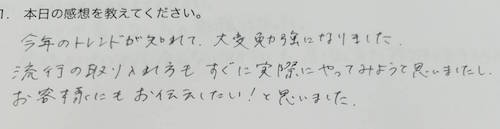 1. 本日の感想を教えてください。
今年のトレンドが知れて、大変勉強になりました.
流行の取り入れ方も すぐに実際にやってみようと思いましたし.
お客様にも お伝えしたい!と思いました.